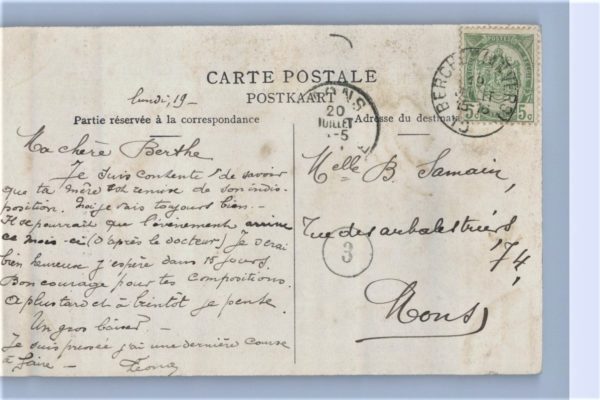 CARTE POSTALE
POSTKAART
lundi, 19 -
Partie réservée à la correspondance
Ma chère Berthe
Je suis contente de savoir
que ta mère est remise de son indis-
position. Moi je vais toujours bien -
Il se pourrait que l'évènement arrive
ce mois-ci (d'après le docteur) Je serai
bien heureuse j'espère dans 15 jours.
Bon courage pour tes compositions.
A plus tard et à bientôt je pense.
Un gros baiser. -
Je suis pressée j'ai une dernière course
à faire -
Adresse du destinat
Melle B. Samain,
rue des arbalestriers
74,
Mons
3
MONS
20
JUILLET
-5
BERCH
5c